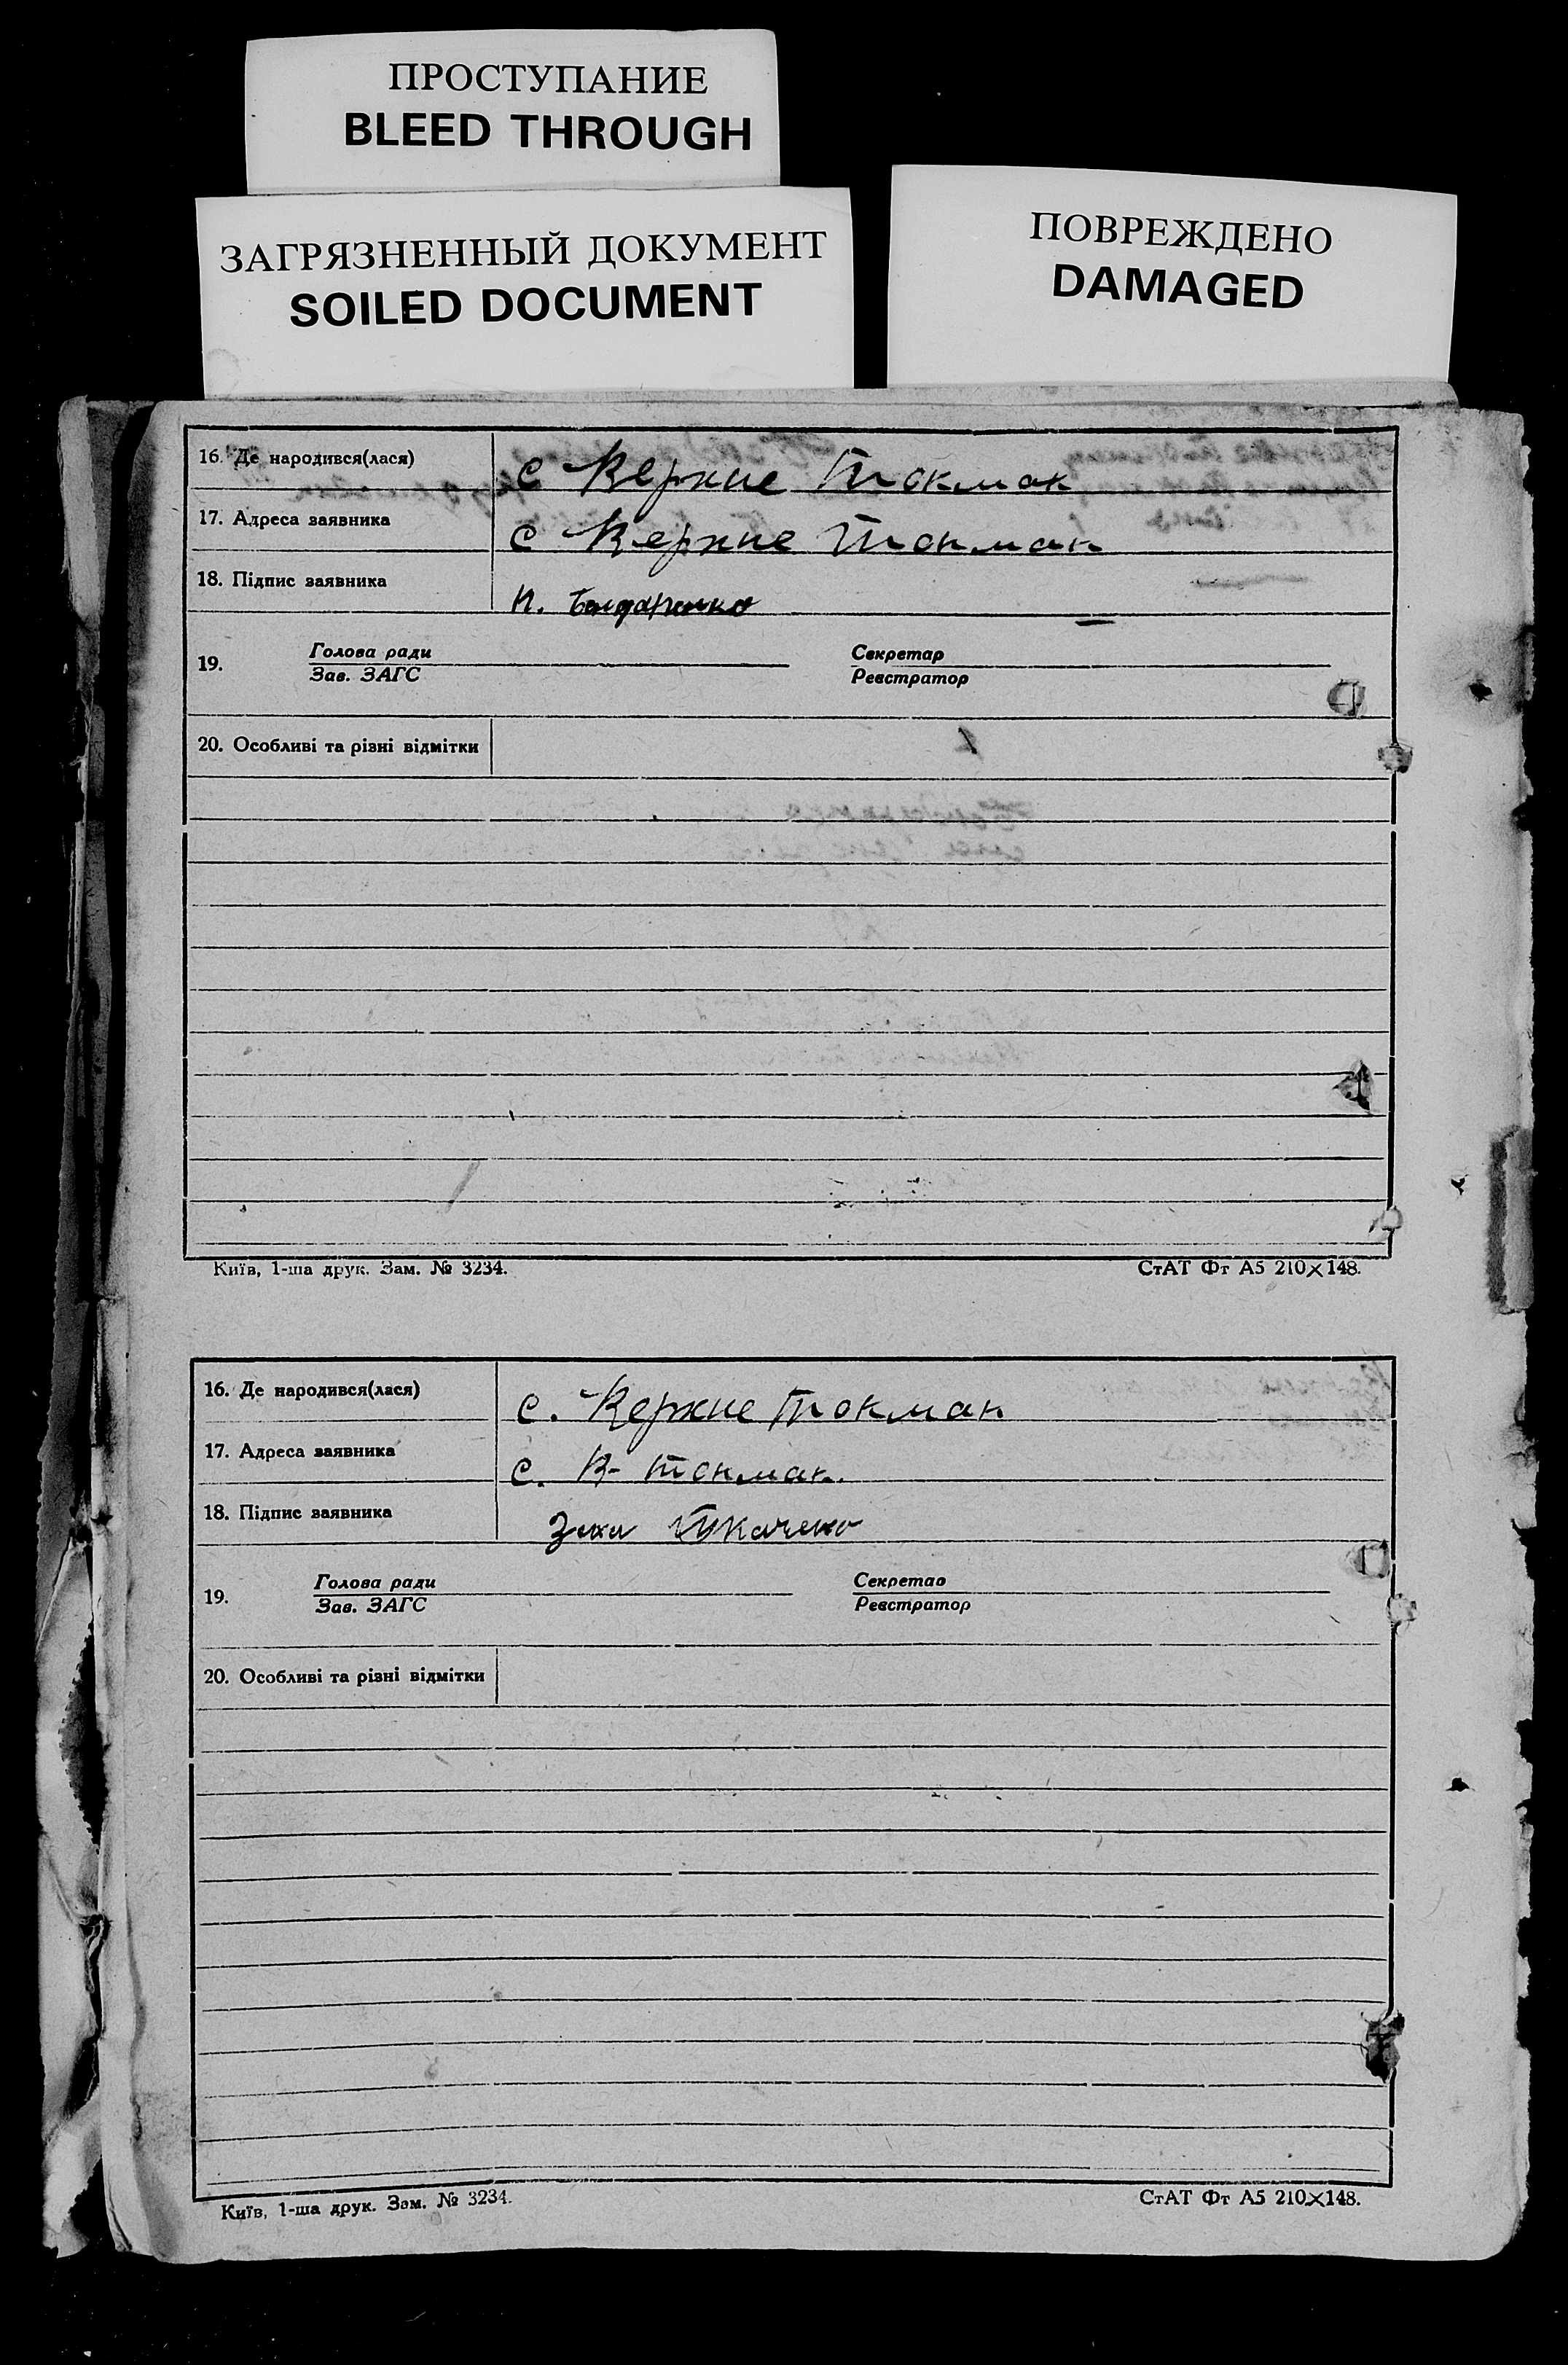 ПРОСТУПАНИЕ
BLEED THROUGH
ЗАГРЯЗНЕННЫЙ ДОКУМЕНТ
SOILED DOCUMENT
ПОВРЕЖДЕНО
DAMAGED
16. Де народився(лася) с Верхне Токмак
17. Адреса заявника с Верхне Токмак
18. Підпис заявника Н. Бондаренко
19. Голова ради Секретар
Зав. ЗАГС Реєстратор
20. Особливі та різні відмітки
Київ, 1-ша друк. Зам. № 3234. СтАТ Фт А5 210×148.
16. Де народився(лася) с. Верхне Токмак
17. Адреса заявника с. В-Токмак.
18. Підпис заявника Ткаченко
19. Голова ради Секретар
Зав. ЗАГС Реєстратор
20. Особливі та різні відмітки
Київ, 1-ша друк. Зам. № 3234. СтАТ Фт А5 210×148.